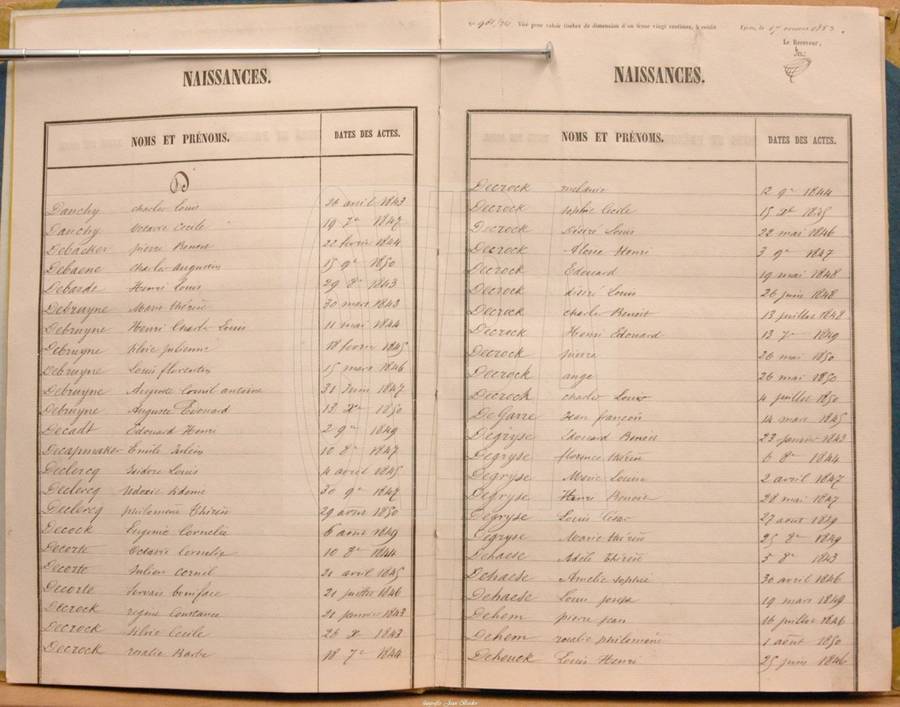 NAISSANCES.
NOMS ET PRÉNOMS. DATES DES ACTES.
D
Danchy charles Louis 24 avril 1843
Danchy Octavie Cecile 19 7e 1847
Debacker pierre Benoit 22 fevrier 1844
Debaene charles augustin 15 9e 1850
Debarde Henri Louis 29 8e 1843
Debruyne Marie thérèse 30 mars 1843
Debruyne Henri Charle Louis 11 mai 1844
Debruyne Silvie julienne 18 fevrier 1845
Debruyne Louis florentin 15 mars 1846
Debruyne Auguste Cornil antoine 31 Juin 1847
Debruyne Auguste Edouard 13 Xe 1850
Decadt Edouard Henri 2 9e 1849
Decapmaker Emile Julien 10 8e 1847
Declercq Isidore Louis 4 avril 1845
Declercq 30 9e 1847
Declercq philomène Thérèse 29 aout 1850
Decock Eugenie Cornelie 6 aout 1849
Decorte Octavie Cornelie 10 8e 1844
Decorte Julien Cornil 21 avril 1845
Decorte Servais boniface 21 juillet 1846
Decrock regine Constance 21 janvier 1843
Decrock silvie Cecile 28 X 1843
Decrock rosalie Barbe 18 7e 1844
Visé pour valoir timbre de dimension d'un franc vingt centimes, à crédit Ypres, le 17 1853.
Le Receveur,
NAISSANCES.
NOMS ET PRÉNOMS. DATES DES ACTES.
Decrock melanie 12 9e 1844
Decrock sophie Cecile 15 Xe 1845
Decrock Désiré Louis 22 mai 1846
Decrock Henri 3 9e 1847
Decrock Edouard 19 mai 1848
Decrock désiré Louis 26 juin 1848
Decrock charles Benoit 13 juillet 1848
Decrock Henri Edouard 13 7e 1849
Decrock pierre 26 mai 1850
Decrock ange 26 mai 1850
Decrock charles Louis 4 juillet 1850
DeGarre Jean françois 14 mars 1845
Degryse Edouard Benoit 23 janvier 1843
Degryse florence thérèse 6 8e 1844
Degryse Marie Louise 2 avril 1847
Degryse Henri Benoit 28 mai 1847
Degryse Louis César 27 aout 1849
Degryse Marie thérèse 25 8e 1849
Dehaese Adèle thérèse 5 8e 1843
Dehaese Amelie sophie 30 avril 1846
Dehaese Louis joseph 19 mars 1849
Dehem pierre jean 16 juillet 1846
Dehem rosalie philomène 1 août 1850
Deheuck Louis Henri 25 juin 1846